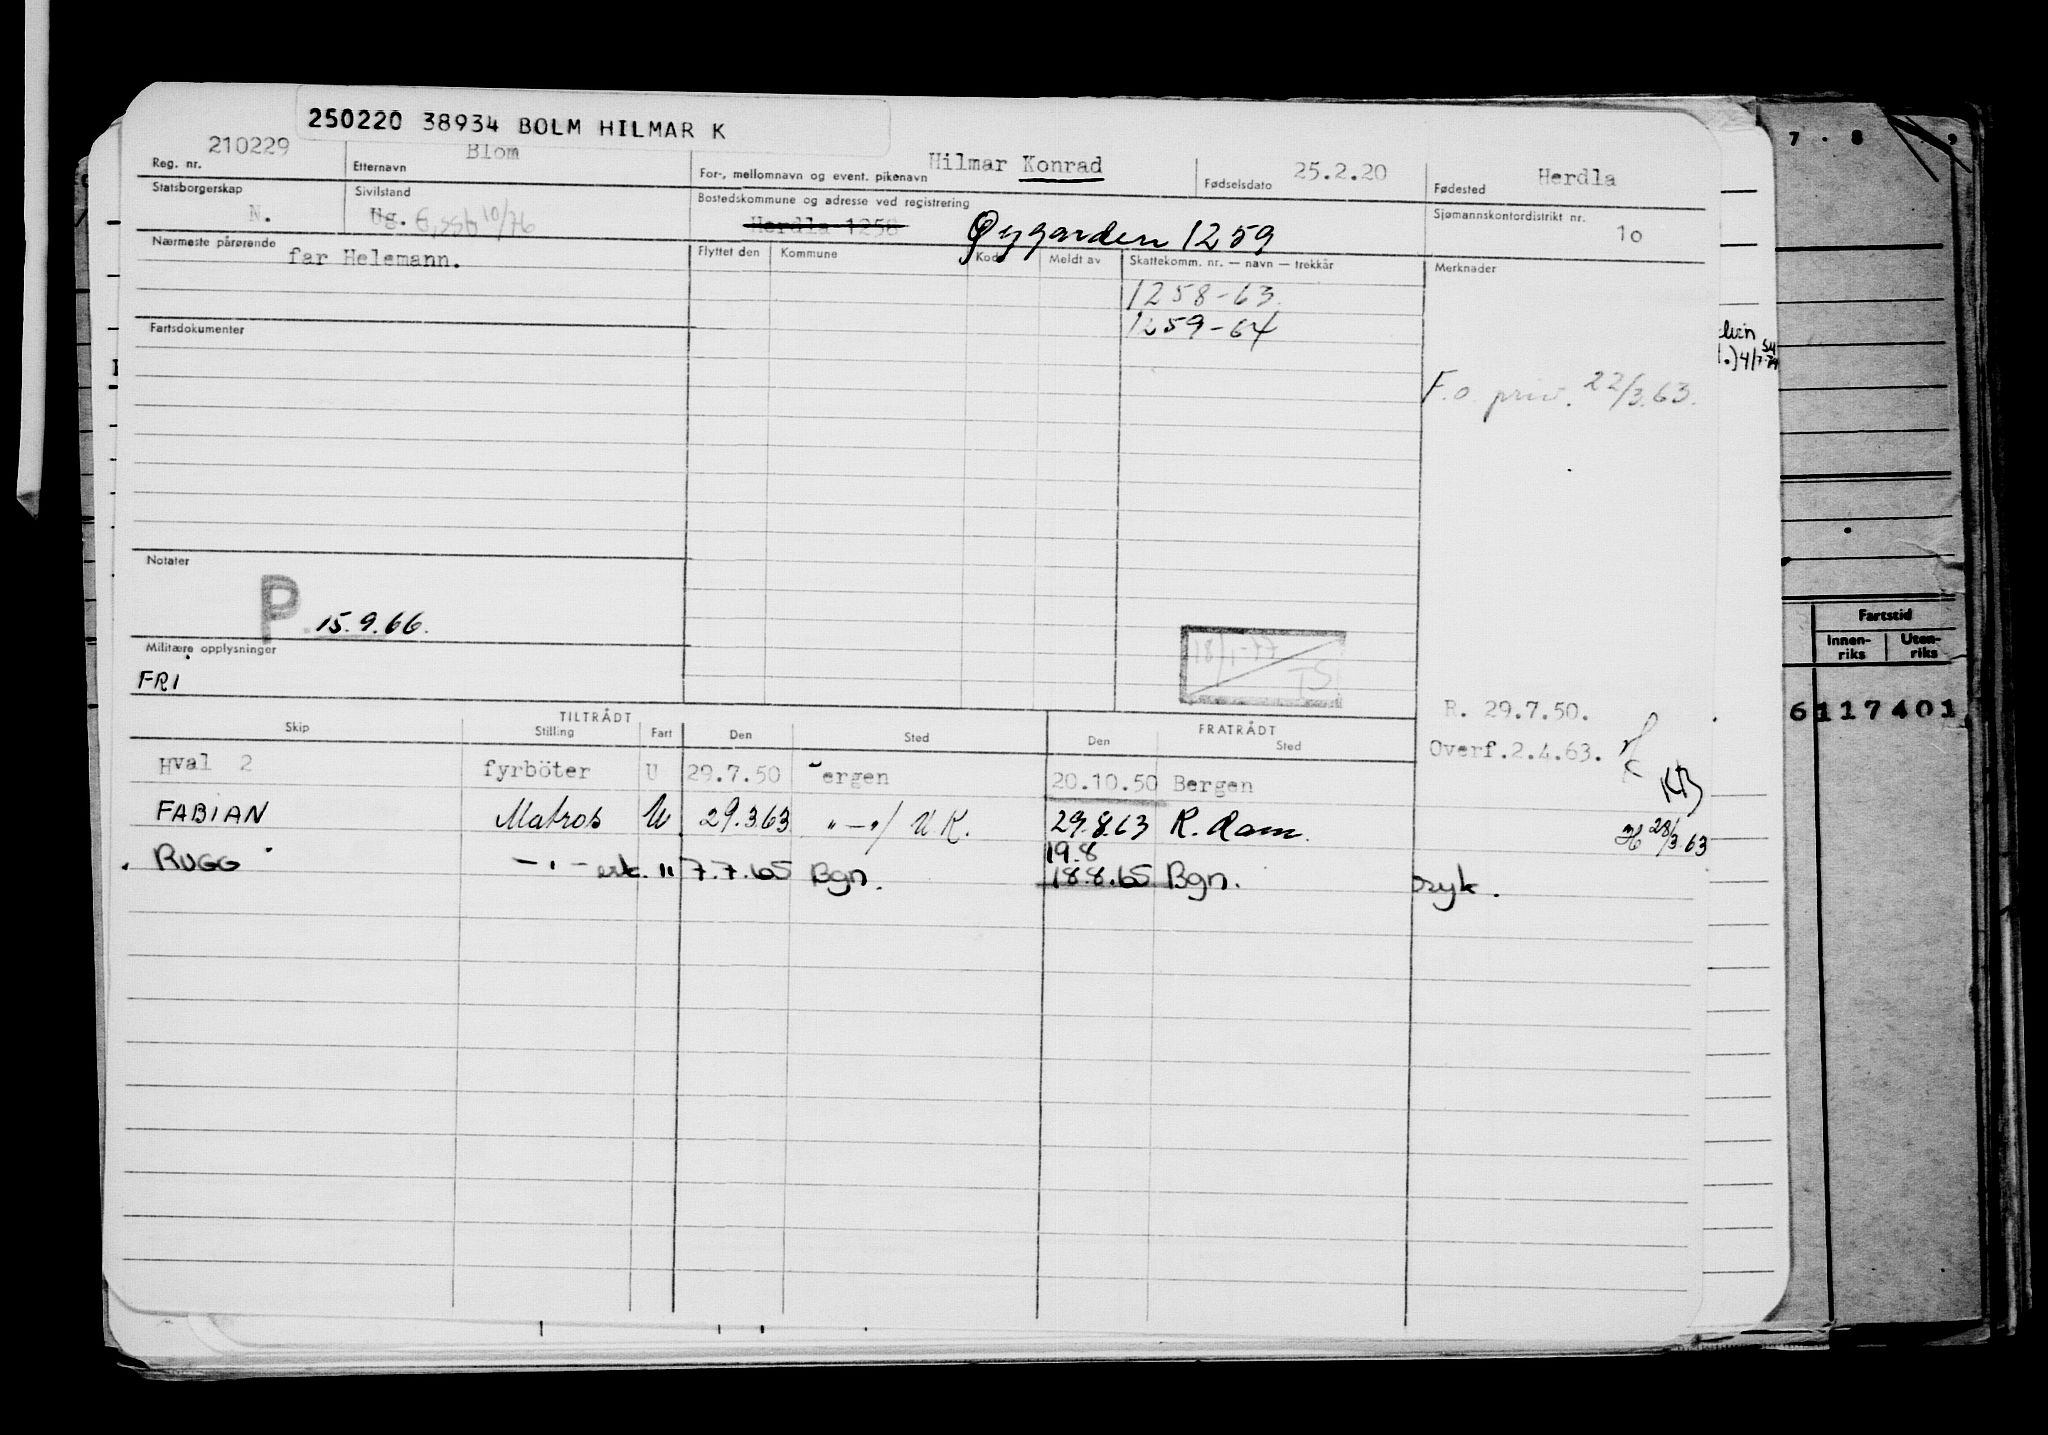 250220 38934 BOLM HILMAR K
Reg. nr. 210229 Etternavn Blom For-, mellomnavn og event. pikenavn Hilmar Konrad Fødselsdato 25.2.20 Fødested Herdla
Statsborgerskap N. Sivilstand Ug. Bostedskommune og adresse ved registrering Herdla 1258 Øygarden 1259 Sjømannskontordistrikt nr. 10
Nærmeste pårørende far Helemann. Flyttet den Kommune Kode Meldt av Skattekomm. nr. — navn — trekkår Merknader
1258-63
1259-64
Fartsdokumenter
F.o. priv. 22/3.63.
Notater
P. 15.9.66.
Militære opplysninger
FRI
18/1-77 TS
R. 29.7.50.
Overf.2.4.63.
TILTRÅDT FRATRÅDT
Skip Stilling Fart Den Sted Den Sted
Hval 2 fyrböter U 29.7.50 ergen 20.10.50 Bergen
FABIAN Matros U 29.3.63 "—"/ U K. 29.8.63 R. dam. 28/3.63
19.8
RUGG —"— erk. " 7.7.65 Bgn. 18.8.65 Bgn. syk.
7 . 8 . 9
Fartstid
Innen-riks Uten-riks
6117401